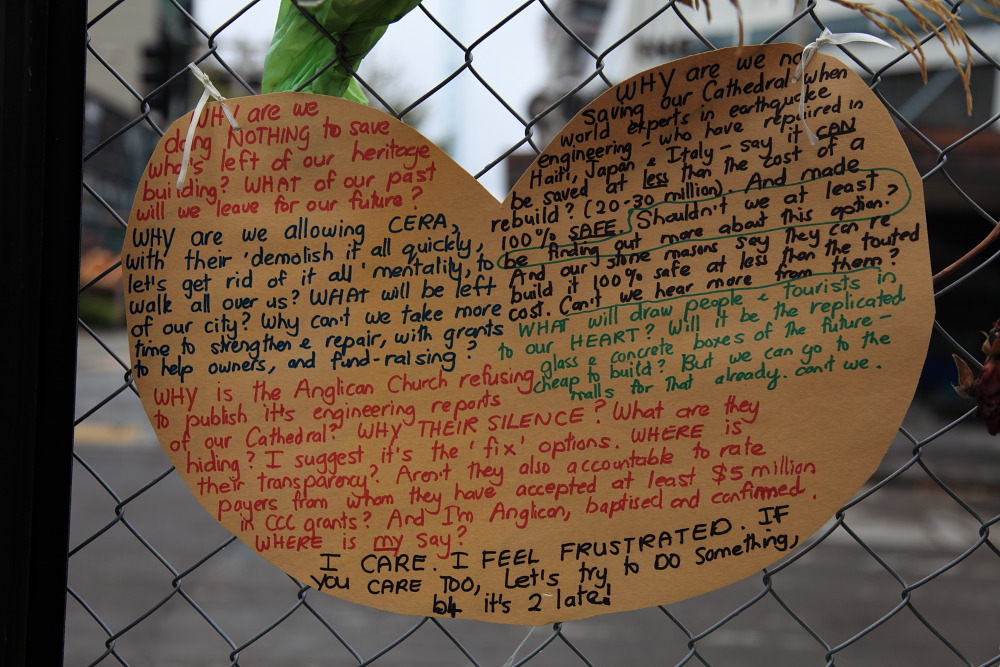 WHY are we
doing NOTHING to save
what's left of our heritage
building? WHAT of our past
will we leave for our future?
WHY are we allowing CERA,
with their 'demolish it all quickly,
let's get rid of it all' mentality, to
walk all over us? WHAT will be left
of our city? Why can't we take more
time to strengthen & repair, with grants
to help owners, and fund-raising?
WHY are we not
saving our Cathedral when
world experts in earthquake
engineering - who have repaired in
Haiti, Japan & Italy - say it CAN
be saved at less than the cost of a
rebuild? (20-30 million). And made
100% SAFE. Shouldn't we at least
be finding out more about this option?
And our stone masons say they can re
build it 100% safe at less than the touted
cost. Can't we hear more from them?
WHAT will draw people & tourists in
to our HEART? Will it be the replicated
glass & concrete boxes of the future -
cheap to build? But we can go to the
malls for that already. can't we.
WHY is the Anglican Church refusing
to publish it's engineering reports
of our Cathedral? WHY THEIR SILENCE? What are they
hiding? I suggest it's the 'fix' options. WHERE is
their transparency? Aren't they also accountable to rate
payers from whom they have accepted at least $5 million
in CCC grants? And I'm Anglican, baptised and confirmed.
WHERE is my say?
I CARE. I FEEL FRUSTRATED. IF
YOU CARE TOO, Let's try to DO something,
b4 it's 2 late!